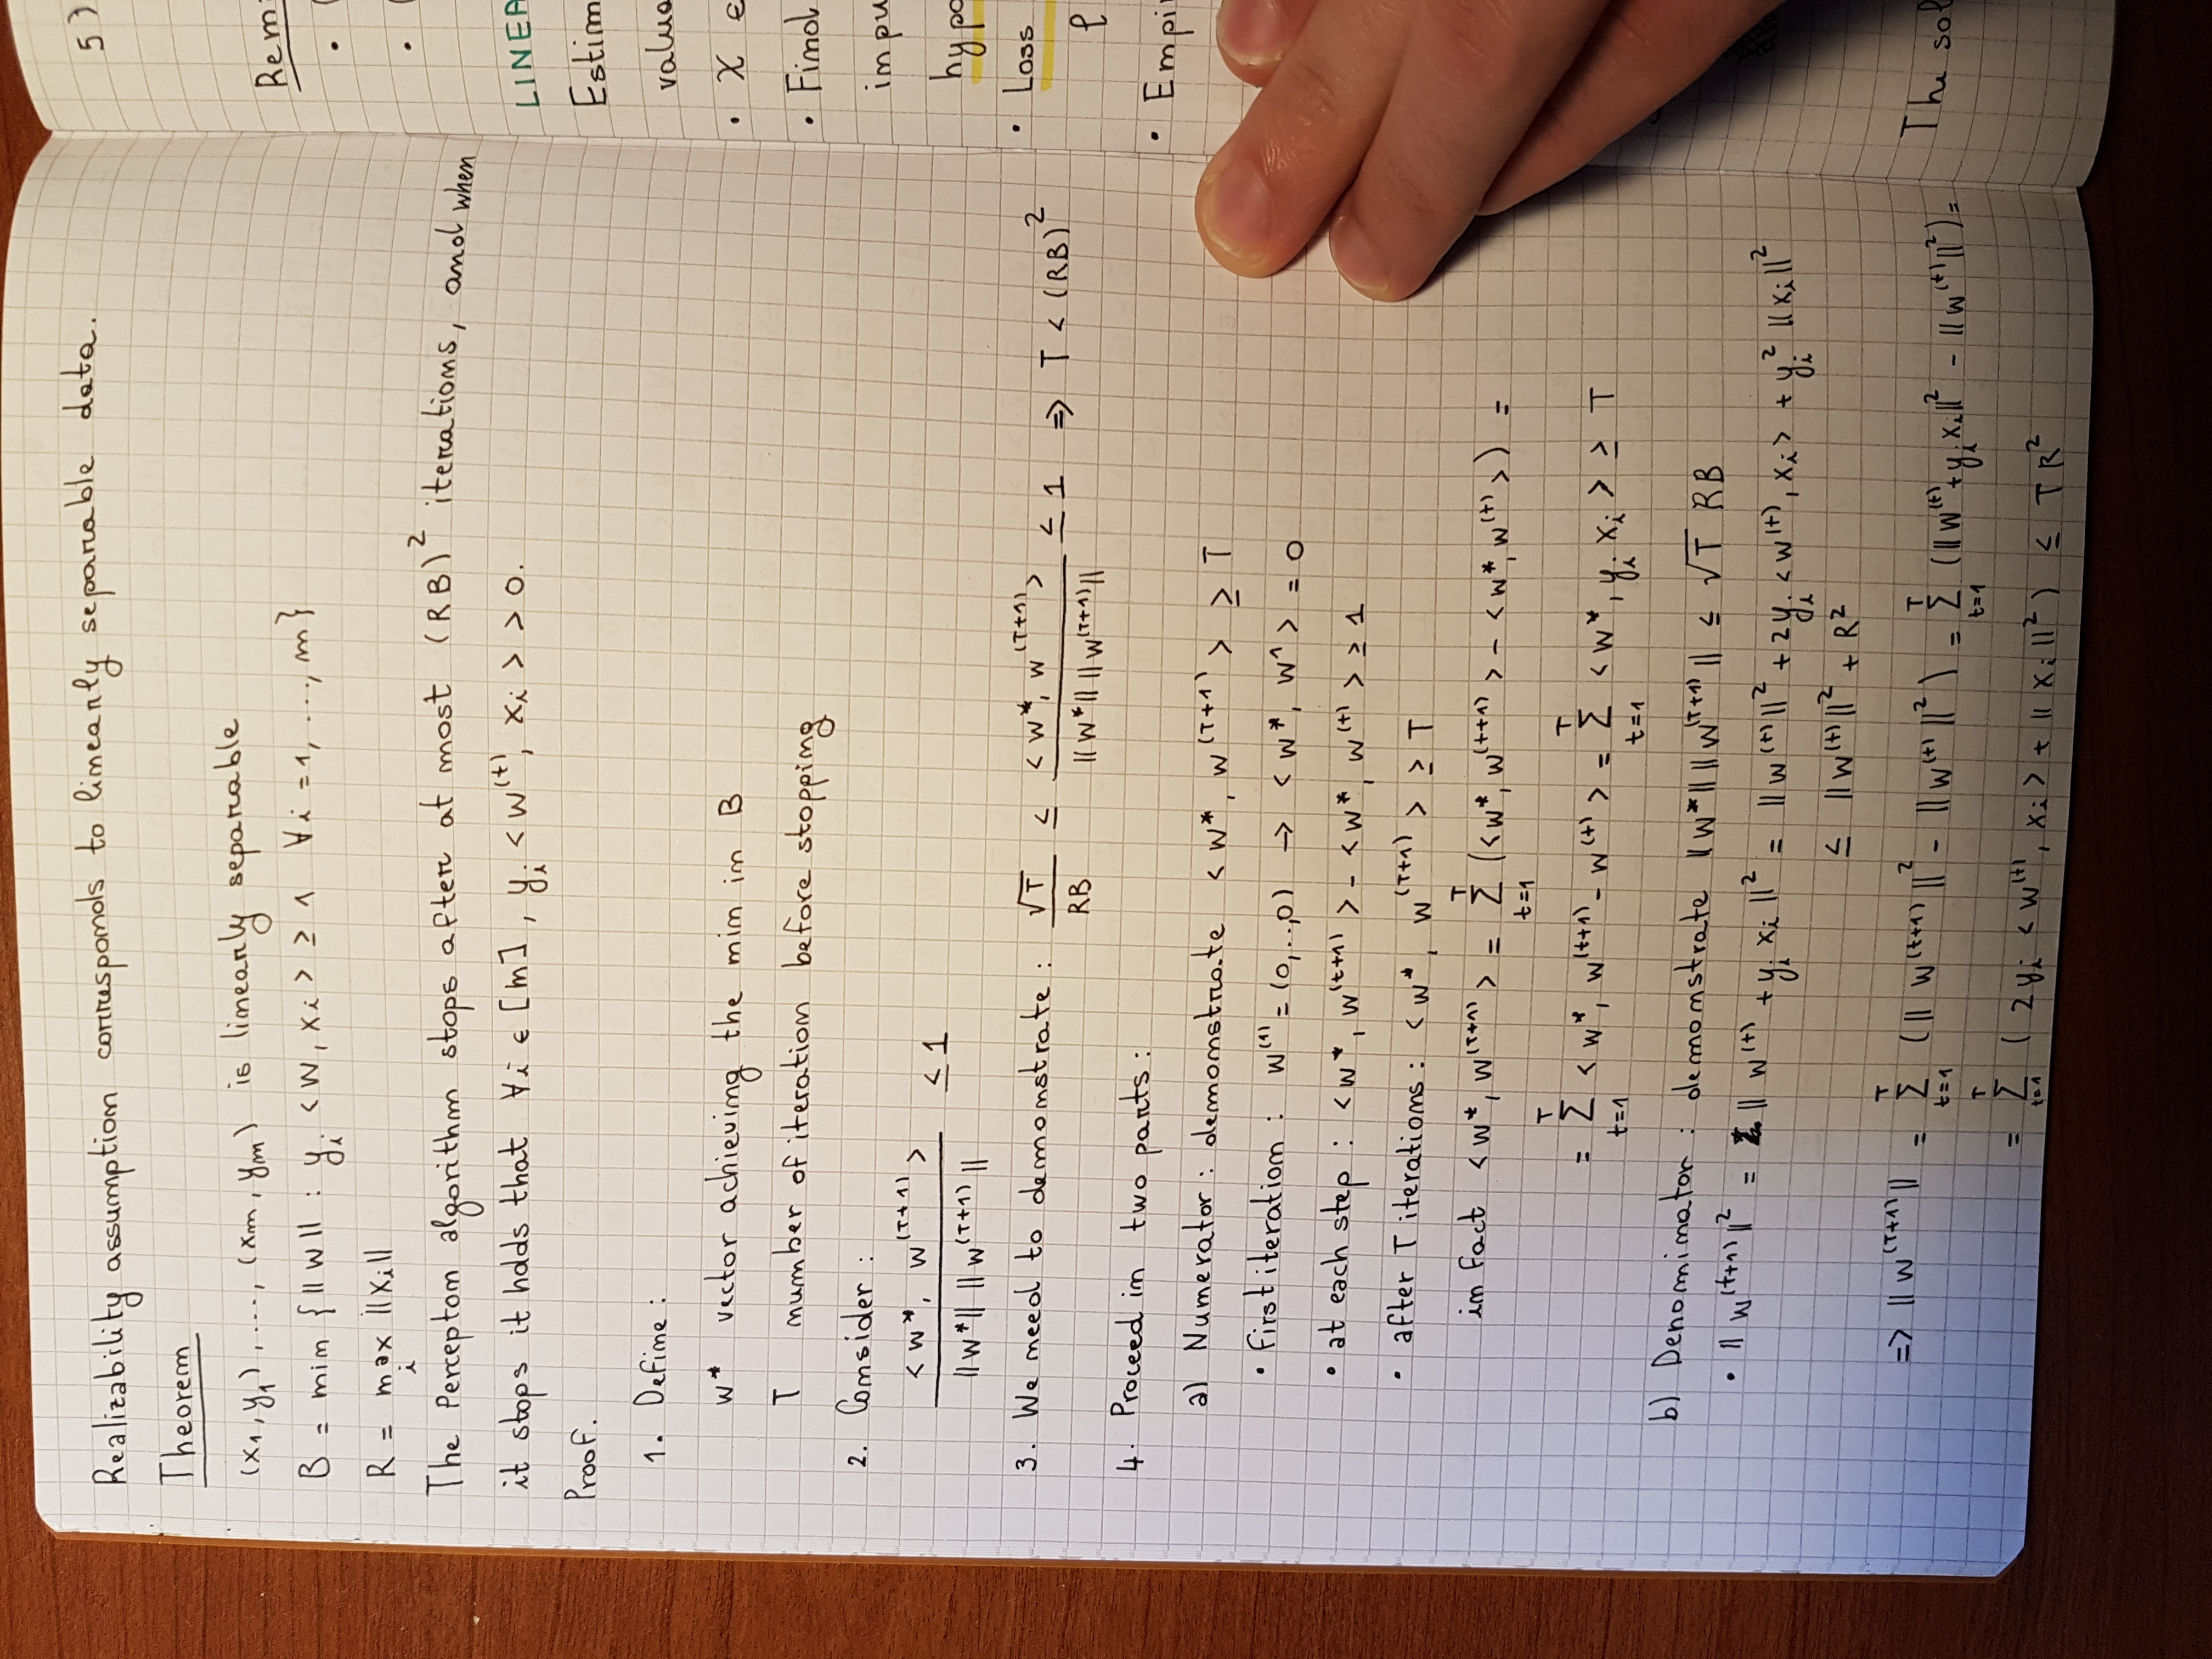 Realizability assumption corresponds to linearly separable data.
Theorem
(x₁, y₁), ..., (xm, ym) is linearly separable
B = min {||w|| : yᵢ <w, xᵢ> ≥ 1 ∀i = 1, ..., m}
R = max ||xᵢ||
i
The Perceptom algorithm stops after at most (RB)² iterations, and when
it stops it holds that ∀i ∈ [m], yᵢ <w⁽ᵗ⁾, xᵢ> > 0.
Proof.
1. Define:
w* vector achieving the min in B
T number of iteration before stopping
2. Consider:
<w*, w^(T+1)> / ||w*|| ||w^(T+1)|| ≤ 1
3. We need to demonstrate: √T / RB ≤ <w*, w^(T+1)> / ||w*|| ||w^(T+1)|| ≤ 1 => T < (RB)²
4. Proceed in two parts:
a) Numerator: demonstrate <w*, w^(T+1)> ≥ T
• first iteration: w^(1) = (0,..,0) → <w*, w¹> = 0
• at each step: <w*, w^(t+1)> - <w*, w^(t)> ≥ 1
• after T iterations: <w*, w^(T+1)> ≥ T
in fact <w*, w^(T+1)> = Σ_{t=1}^T (<w*, w^(t+1)> - <w*, w^(t)>) =
= Σ_{t=1}^T <w*, w^(t+1) - w^(t)> = Σ_{t=1}^T <w*, yᵢ xᵢ> ≥ T
b) Denominator: demonstrate ||w*|| ||w^(T+1)|| ≤ √T RB
• ||w^(t+1)||² = ||w^(t) + yᵢ xᵢ||² = ||w^(t)||² + 2yᵢ <w^(t), xᵢ> + yᵢ² ||xᵢ||²
≤ ||w^(t)||² + R²
=> ||w^(T+1)|| = Σ_{t=1}^T (||w^(t+1)||² - ||w^(t)||²) = Σ_{t=1}^T (||w^(t) + yᵢ xᵢ||² - ||w^(t)||²) =
= Σ_{t=1}^T (2yᵢ <w^(t), xᵢ> + ||xᵢ||²) ≤ TR²
5)
LINEA
Estim
valua
• X ∈
• Find
inpu
hypo
• Loss
ℓ
• Empi
The sol